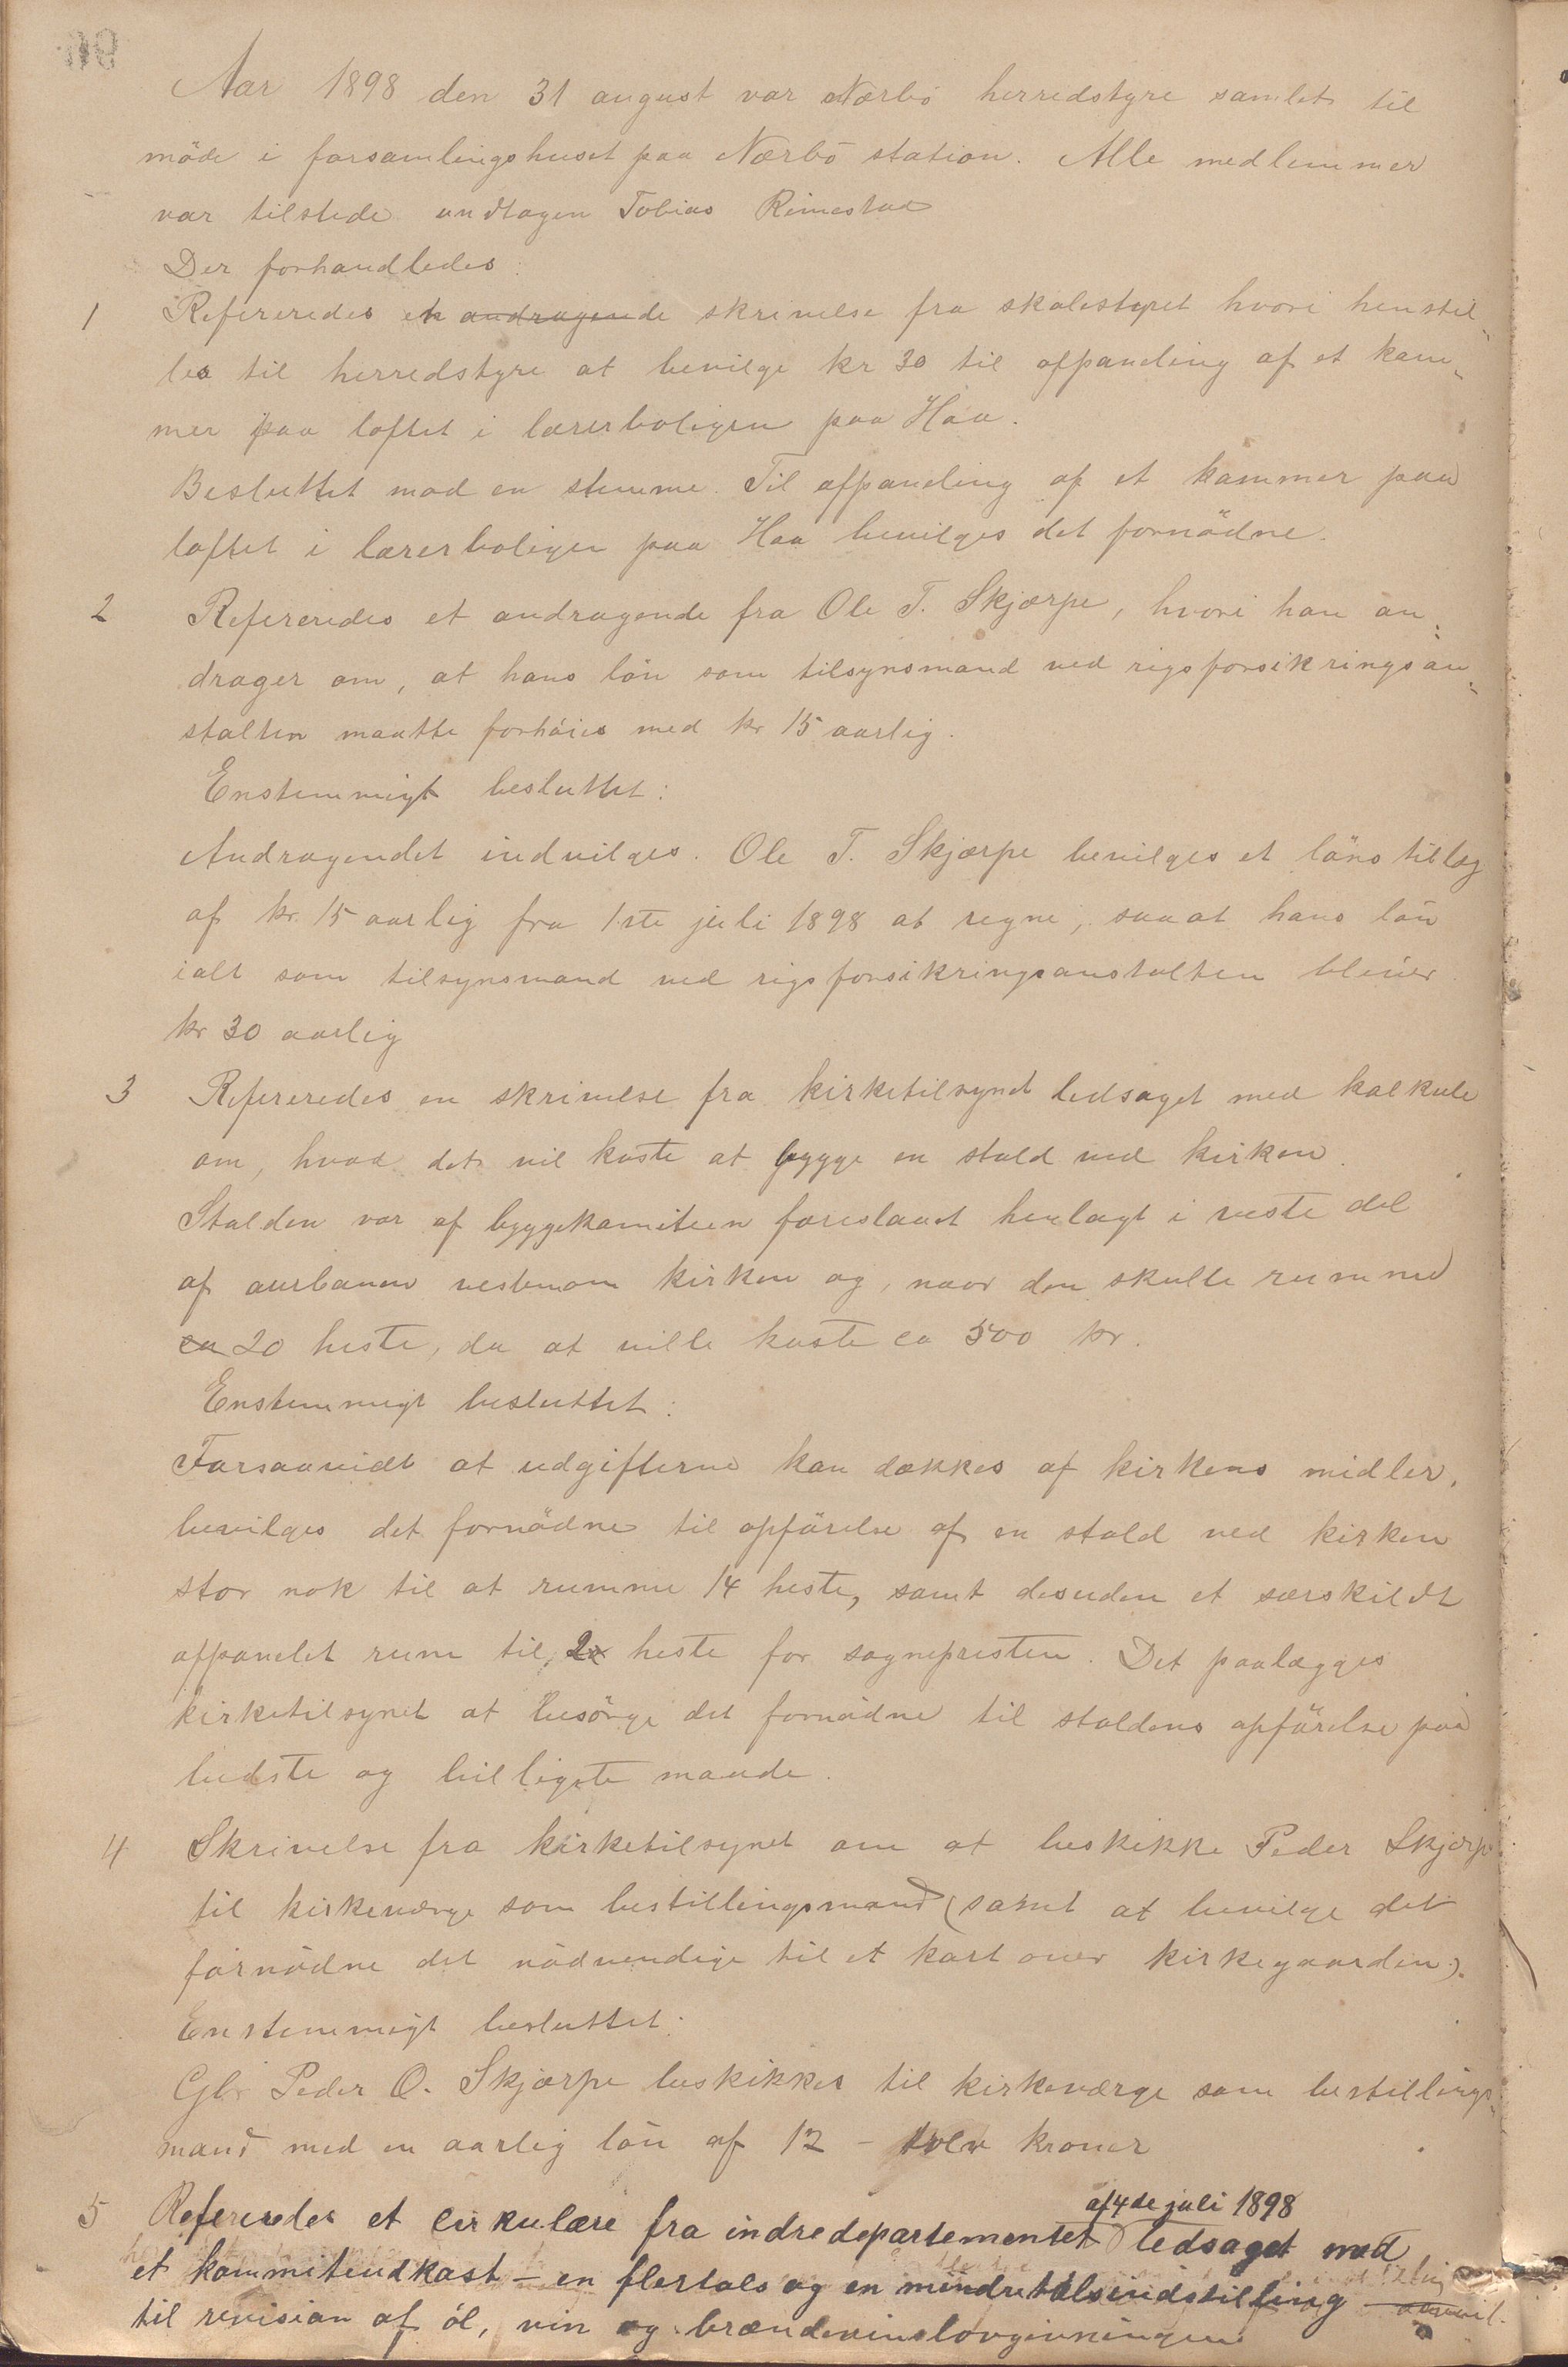 Aar 1898 den 31 august var Nærbö herredstyre samlet til
möde i forsamlingshuset paa Nærbö station. Alle medlemmer
var tilstede undtagen Tobias Rimestad
Der forhandledes:
1 Refereredes en andragende skrivelse fra skolestyret hvori henstil-
les til herredstyre at bevilge kr 30 til afpaneling af et kam-
mer paa loftet i lærerboligen paa Haa.
Besluttet mod en stemme. Til afpaneling af et kammer paa
loftet i lærerboligen paa Haa bevilges det fornödne.
2 Refereredes et andragende fra Ole T. Skjærpe, hvori han an-
drager om, at hans lön som tilsynsmand ved rigsforsikringsan-
stalten maatte forhöies med kr 15 aarlig.
Enstemmigt besluttet:
Andragendet indvilges. Ole T. Skjærpe bevilges et lönstillæg
af kr. 15 aarlig fra 1ste juli 1898 at regne, saa at hans lön
ialt som tilsynsmand ved rigsforsikringsanstalten bliver
kr 30 aarlig
3 Refereredes en skrivelse fra kirketilsynet ledsaget med kalkule
om, hvad det vil koste at bygge en stald ved kirken.
Stalden var af byggekomiteen foreslaaet henlagt i veste del
af aurbanen vestenom kirken og, naar den skulle rumme
ca 20 heste, da at ville koste ca 500 kr.
Enstemmigt besluttet:
Forsaavidt at udgifterne kan dækkes af kirkens midler,
bevilges det fornödne til opförelse af en stald ved kirken
stor nok til at rumme 14 heste, samt desuden et særskildt
afpanelet rum til 2 heste for sognepresten. Det paalægges
kirketilsynet at besörge det fornödne til staldens opförelse paa
bedste og billigste maade.
4 Skrivelse fra kirketilsynet om at beskikke Peder Skjærpe
til kirkeværge som bestillingsmand (samt at bevilge det
fornödne det nödvendige til et kart over kirkegaarden).
Enstemmigt besluttet:
Gbr Peder O. Skjærpe beskikkes til kirkeværge som bestillings-
mand med en aarlig lön af 12 - tolv kroner
af 4de juli 1898
5 Refereredes et cirkulære fra indredepartementet ledsaget med
et kommiteudkast - en flertals og en mindretalsindstilling
til revision af öl, vin og brændevinslovgivningen